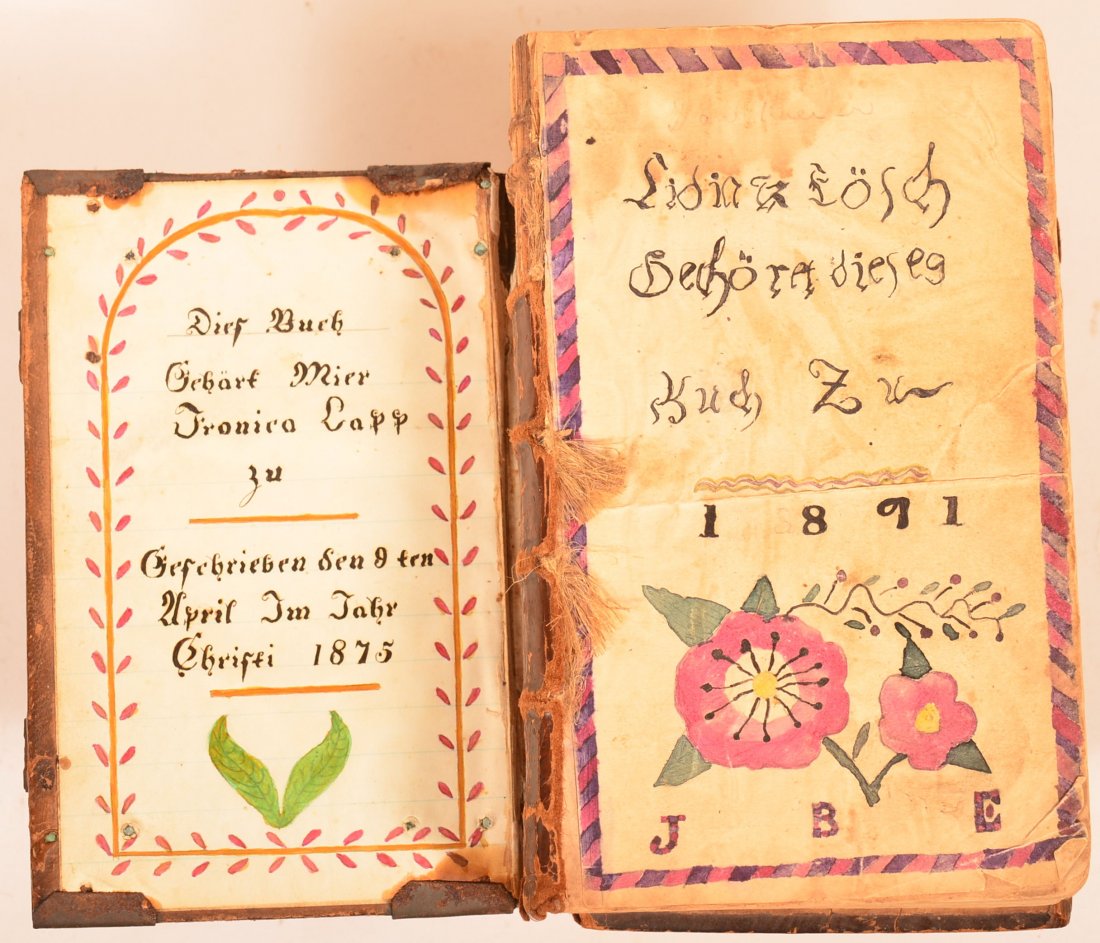 Dies Buch
Gehärt Mier
Fronica Lapp
zu
Geschrieben den 9 ten
April Im Jahr
Christi 1875
Lösch
Gehöret dieses
Buch Zu
1891
J B E